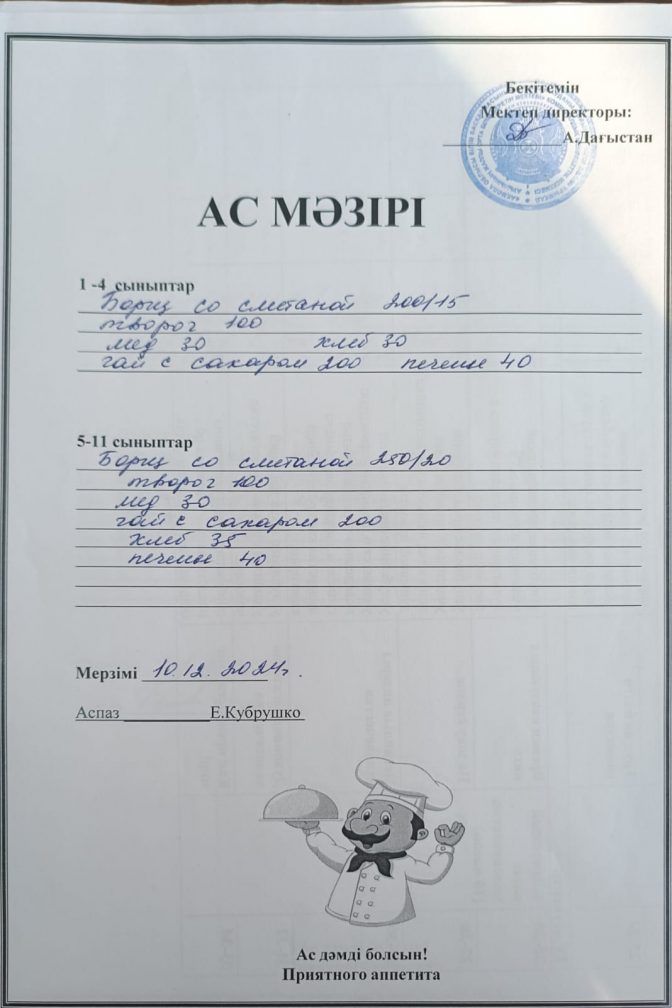 Бекітемін
Мектеп директоры:
А.Дағыстан
АС МӘЗІРІ
1 -4 сыныптар
Борщ со сметаной 200/15
творог 100
мед 30 хлеб 30
чай с сахаром 200 печенье 40
5-11 сыныптар
Борщ со сметаной 250/20
творог 100
мед 30
чай с сахаром 200
хлеб 35
печенье 40
Мерзімі 10.12.2024г.
Аспаз Е.Кубрушко
Ас дәмді болсын!
Приятного аппетита